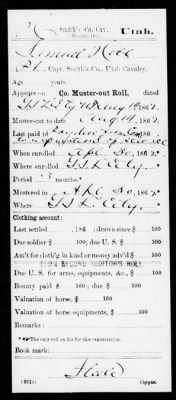 Smith's Co. Cav. Utah.
Pt., Capt. Smith's Co., Utah Cavalry.
Age years.
Appears on Co. Muster-out Roll,
G S L City Aug 14 1862.
Muster-out to date Aug 14, 1862.
Last paid to
When enrolled Apl 30, 1862.
Where enrolled G. S. L. City.
Period 3 months.
Mustered in Apl 30, 1862.
Where G. S. L. City.
Clothing account:
Last settled , 186 ; drawn since $ 100
Due soldier $ 100; due U. S. $ 100
Am't for cloth'g in kind or money adv'd $ 100
Due U. S. for arms, equipments, &c., $ 100
Bounty paid $ 100; due $ 100
Valuation of horse, $ 100
Valuation of horse equipments, $ 100
Remarks:
Book mark:
Copyist.